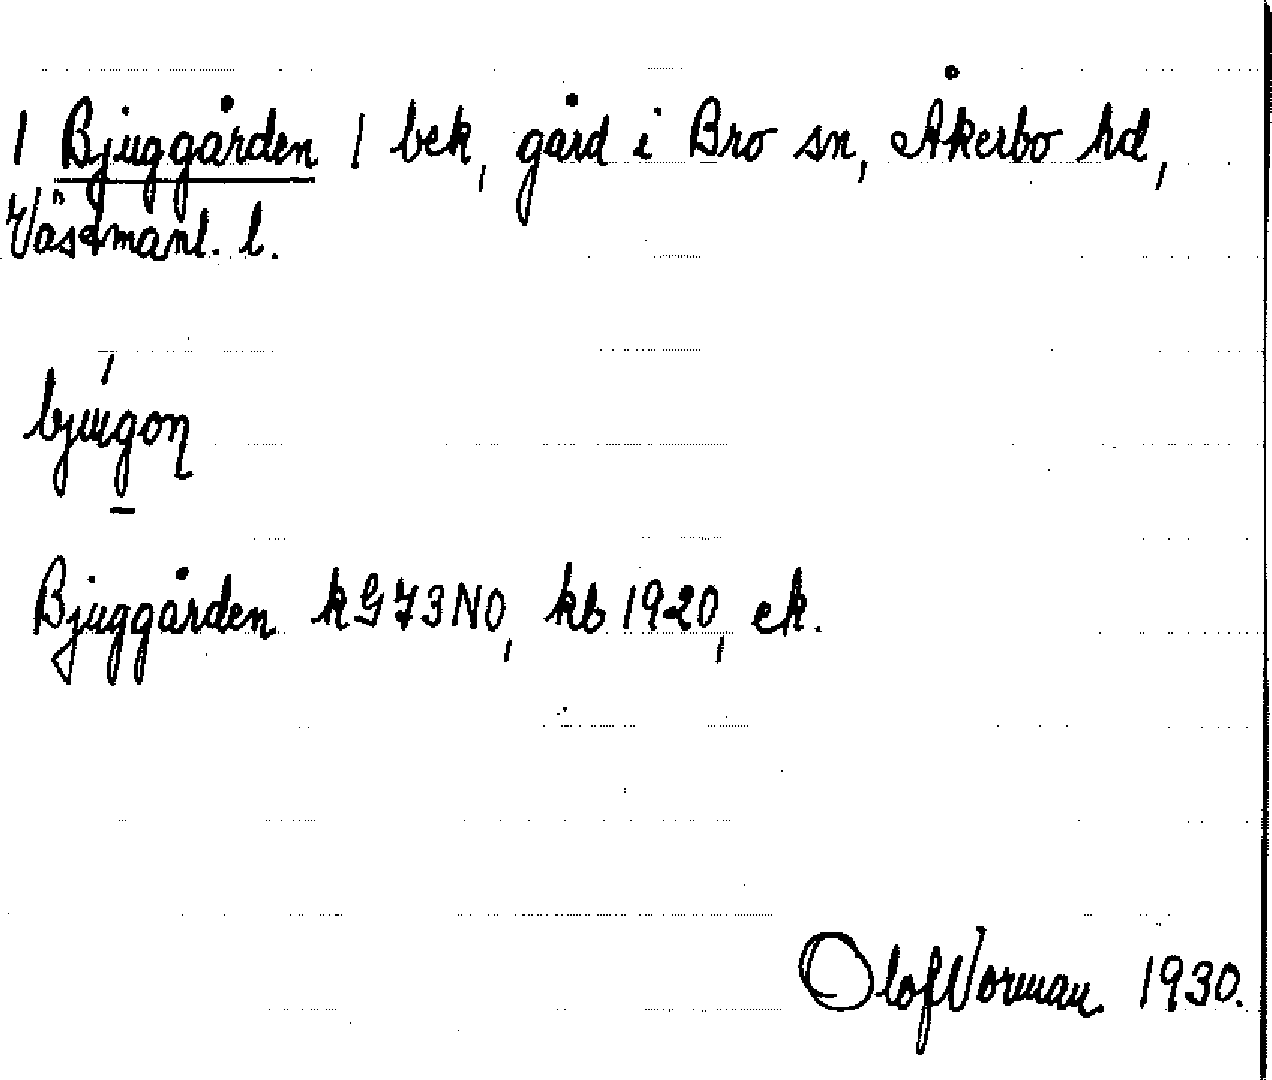 / Bjuggården / bek, gård i Bro sn, Åkerbo hd,
Västmanl. l.
bjúgon
Bjuggården kG73NO, kb 1920, ek.
Olof Vorman. 1930.